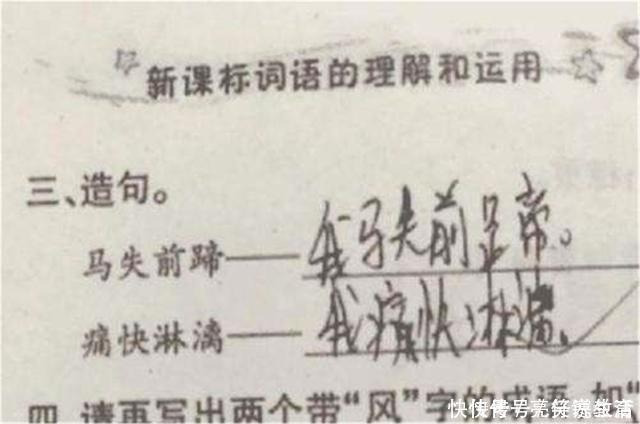 新课标词语的理解和运用
三、造句。
马失前蹄——我马失前蹄。
痛快淋漓——我痛快淋漓。
四 请再写出两个带“风”字的成语,如“